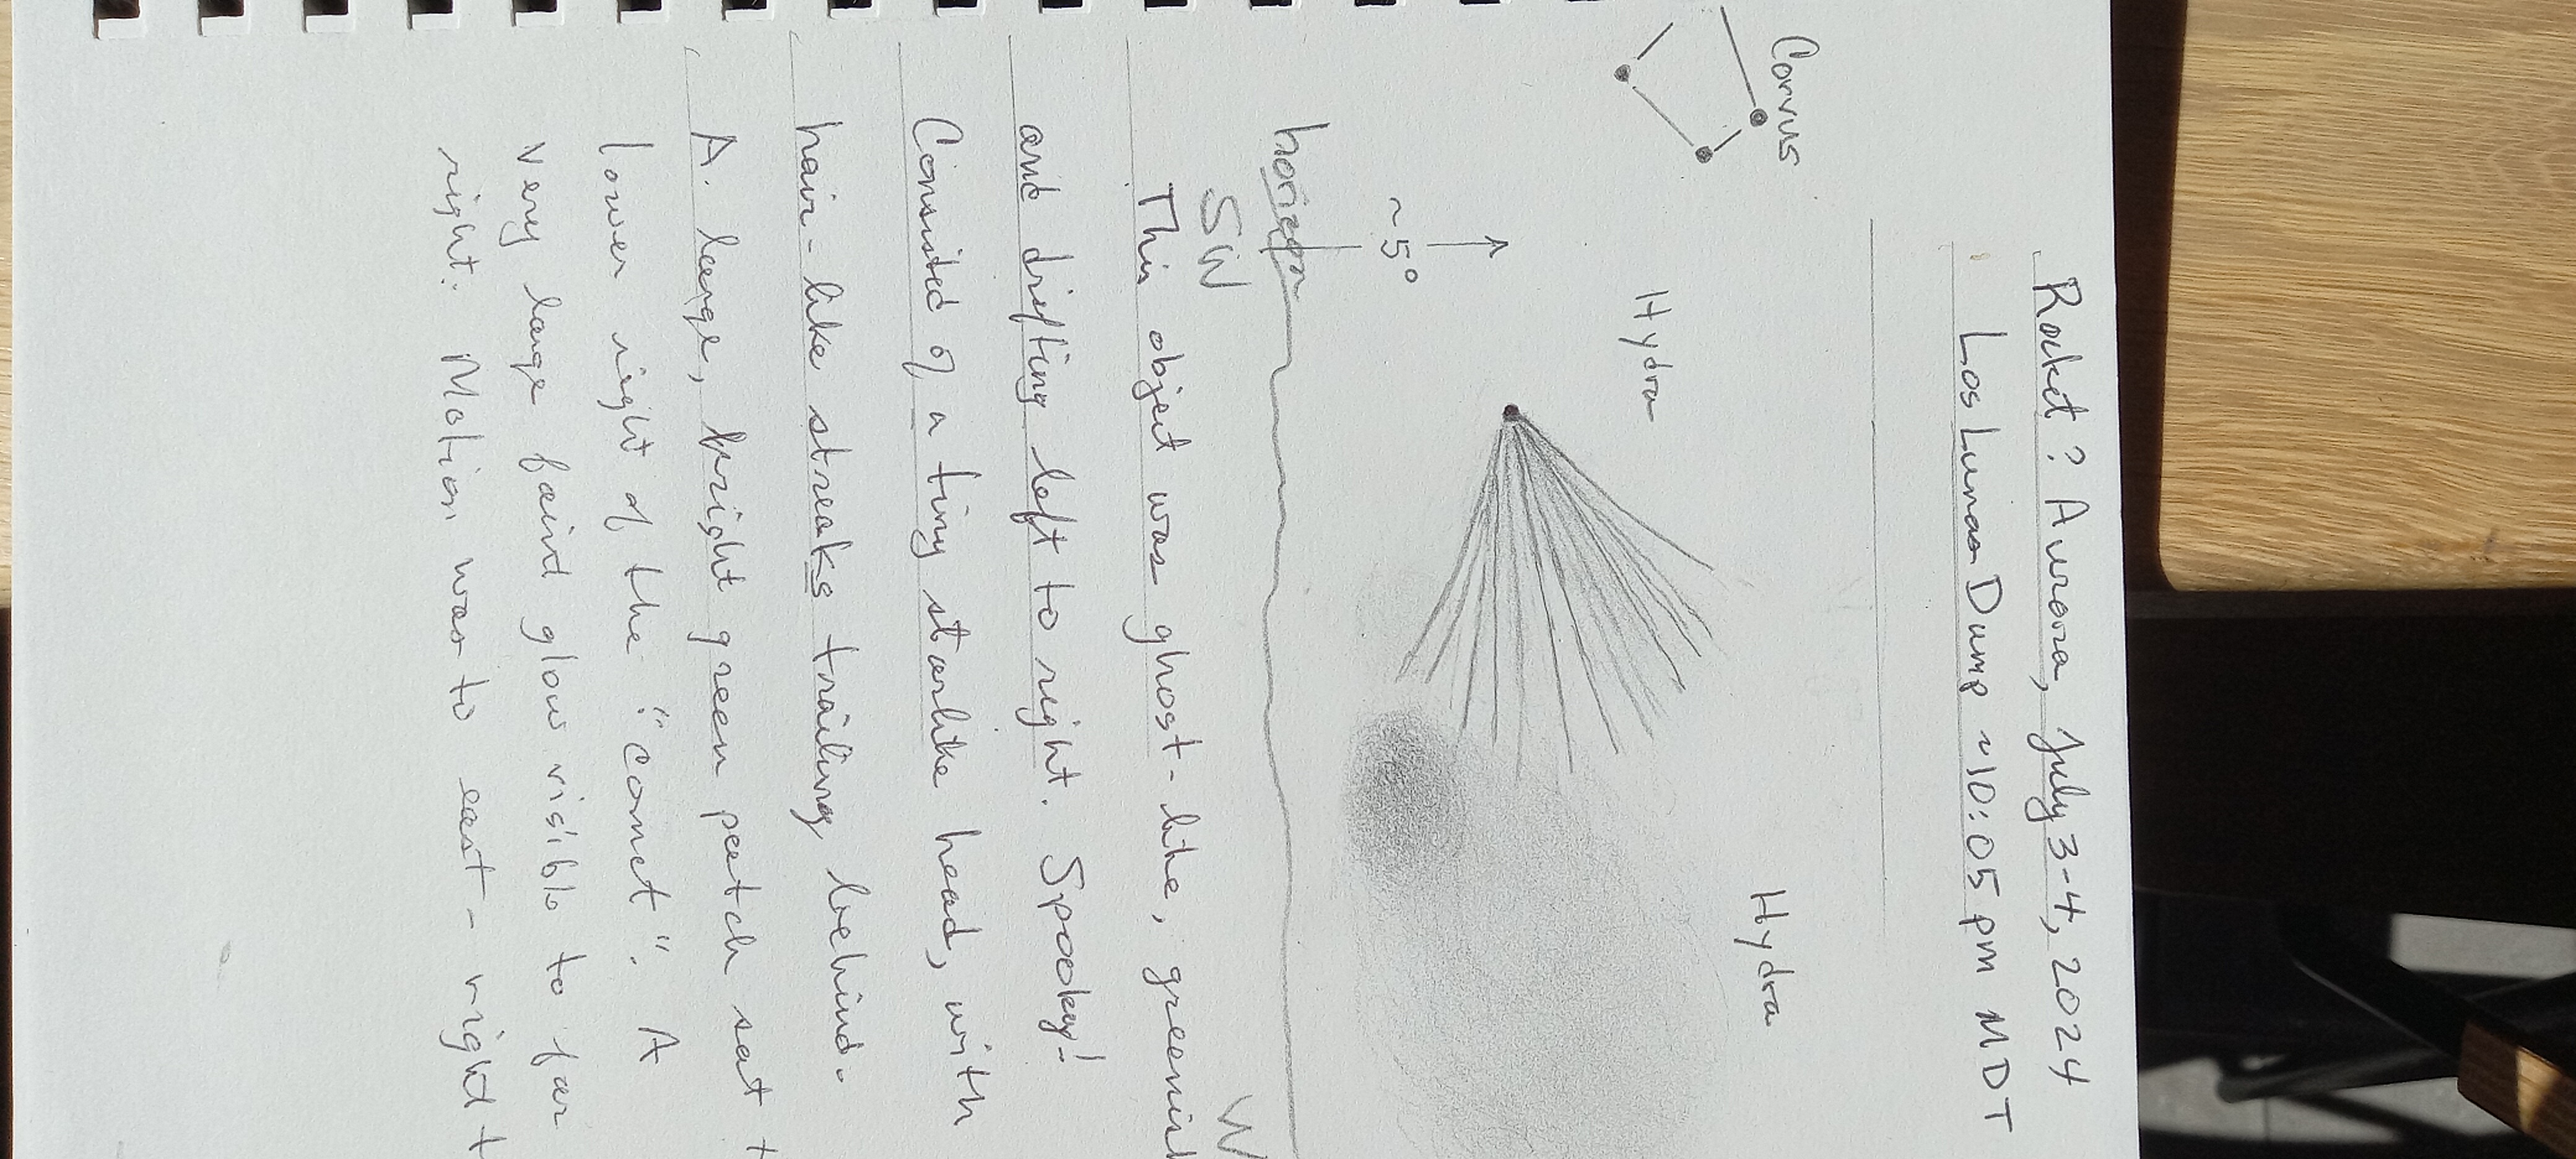 Rocket? Aurora, July 3-4, 2024
Los Lunas Dump ~10:05 pm MDT
Corvus
Hydra
Hydra
~5°
horizon
SW
W
This object was ghost-like, greenish
and drifting left to right. Spooky!
Consisted of a tiny starlike head, with
hair-like streaks trailing behind.
A large, bright green patch sat t
lower right of the "comet". A
very large faint glow visible to far
right. Motion was to east-right t